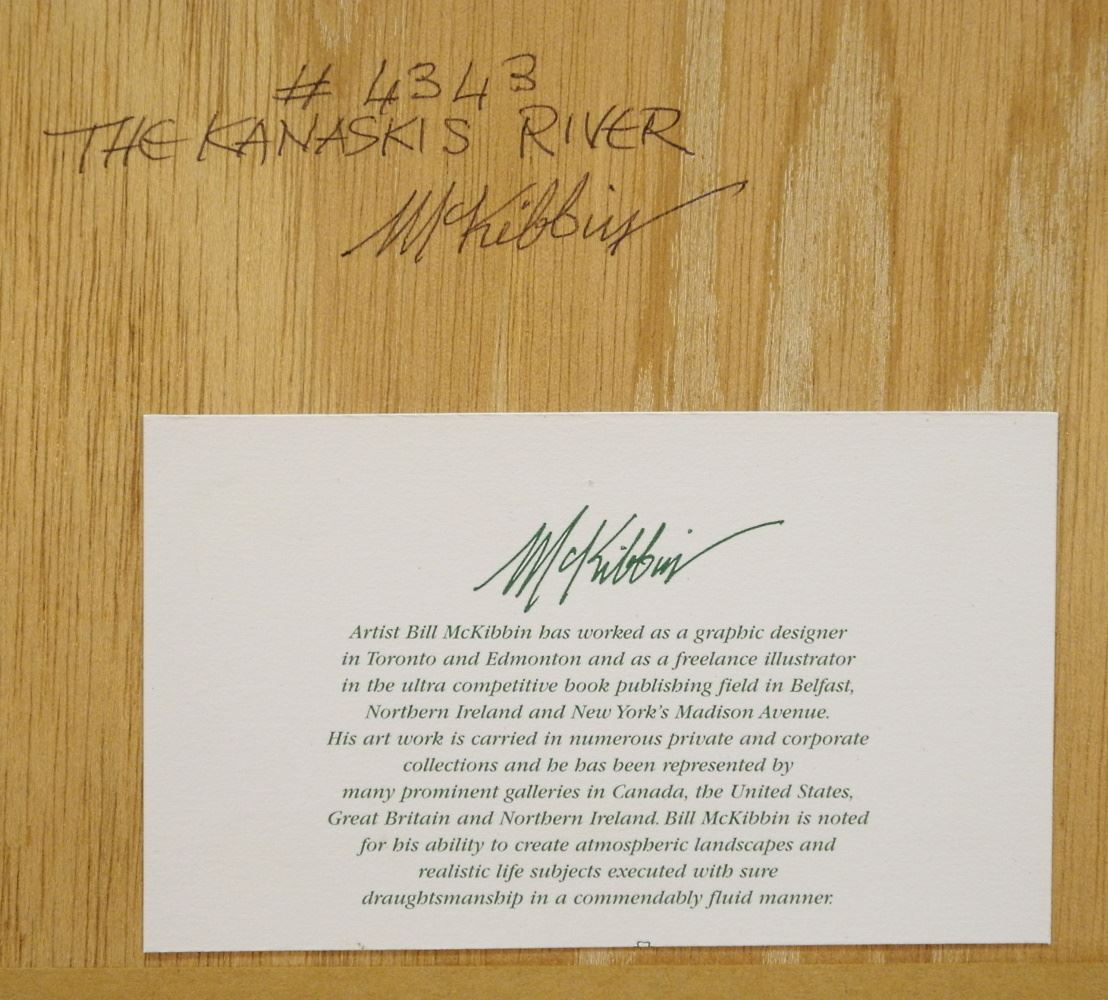 # 4343
THE KANASKIS RIVER
McKibbin
McKibbin
Artist Bill McKibbin has worked as a graphic designer
in Toronto and Edmonton and as a freelance illustrator
in the ultra competitive book publishing field in Belfast,
Northern Ireland and New York's Madison Avenue.
His art work is carried in numerous private and corporate
collections and he has been represented by
many prominent galleries in Canada, the United States,
Great Britain and Northern Ireland. Bill McKibbin is noted
for his ability to create atmospheric landscapes and
realistic life subjects executed with sure
draughtsmanship in a commendably fluid manner.